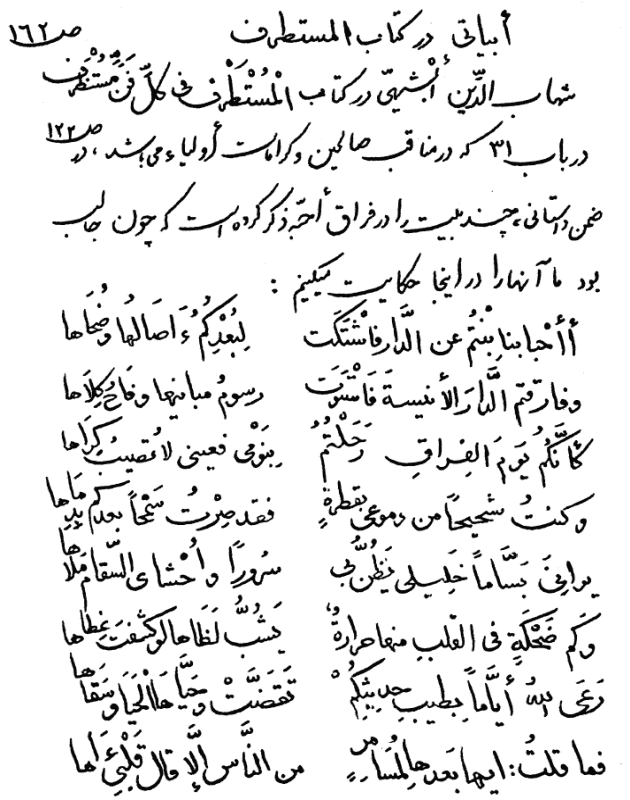 أبیاتی در کتاب المستطرف ص ١٦٢
شهاب الدّین أبْشیهیّ در کتاب الْمُسْتَطْرَف فی کلّ فَنٍّ مُسْتَظْرَف
در باب ٣١ که در مناقب صالحین و کرامات أولیاء می‌باشد، در ص ١٢٢
ضمن داستانی، چند بیت را در فراق أحبّه ذکر کرده است که چون جالب
بود ما آنها را در اینجا حکایت میکنیم :
أأحْبابنا بِنْتُم عن الدَّارِ فَاشْتَكَت لِبُعْدِكُمُ ءَاصَالُها وضُحَاها
وفارقتم الدَّارَ الأنيسةَ فَاسْتَوَت رسومُ مبانيها وفَاحُ كِلاَها
كَأنَّكُم يَومَ الفِراقِ رَحَلْتُمُ بِنَوْمی فعينی لاتُصيبُ كِرَاها
وكنتُ شحيحاً من دموعی بقطرةٍ فقد صِرْتُ سَمْحاً بعدكم بدِمَاها
يرانِیَ بَسَّاماً خَليلی يَظُنُّ بی سُرورًا وأحْشای السَّقام مَلاَها
وَكم ضَحْكَةٍ فی القلبِ منها حرارةٌ يَشُبُّ لَظَاها لو كشفتَ غِطاها
رَعَی اللهُ أيَّاماً بِطيبِ حديثِكُمْ تَقَضَّتْ وحَيَّاهَا الْحَيَا وسَقاها
فما قلتُ: ايها بَعدها لِمُسَامِرٍ من النَّاسِ إلَّا قالَ قَلْبِیَ ءَاها